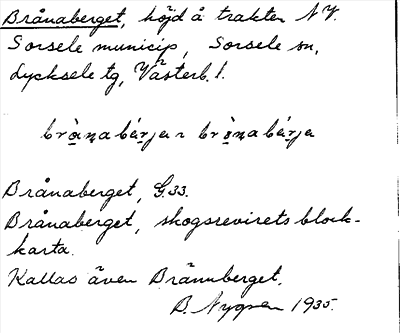 Brånaberget, höjd å trakten N V.
Sorsele municip, Sorsele sn,
Lycksele tg, Västerb. l.
brå̀nabérjer brǿnabérje
Brånaberget, G.33.
Brånaberget, skogsrevirets block-
karta.
Kallas även Brännberget.
B. Nygren 1935.